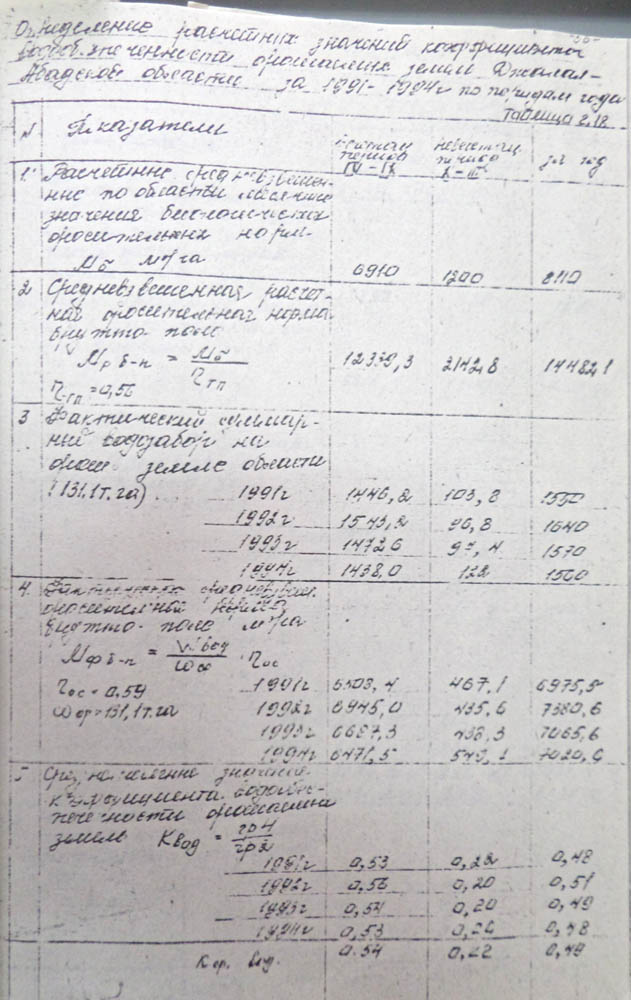 Определение расчетных значений коэффициента
водообеспеченности орошаемых земель Джалал-
Абадской области за 1991-1994г по периодам года
Таблица 2.12
N Показатели вегетац. периода IV-IX невегетац. период X-III за год
1. Расчетные средневзвешен-
ные по области месячные
значения биологических
оросительных норм
Мб м³/га 6910 1200 8110
2 Средневзвешенная расчет-
ная оросительная норма
брутто поло
Мр б-п = Мб / ηтп 12339,3 2142,8 14482,1
ηтп = 0,56
3 Фактический суммар-
ный водозабор на
орош земле области
(131.1т.га) 1991г 1446,2 103,8 1550
1992г 1543,2 96,8 1640
1993г 1472,6 97,4 1570
1994г 1438,0 122 1560
4. Фактическая средневзвеш.
оросительный норма
брутто поло м³/га
Мф б-п = Wвод / ωор · ηос
ηос = 0,59 1991г 6508,4 467,1 6975,5
ωор = 131,1т.га 1992г 6945,0 435,6 7380,6
1993г 6627,3 438,3 7065,6
1994г 6471,5 549,1 7020,6
5 значение
коэффициента водообес-
печенности орошаемых
земель Квод = гр4 / гр2
1991г 0,53 0,22 0,48
1992г 0,56 0,20 0,51
1993г 0,54 0,20 0,49
1994г 0,53 0,26 0,48
Кср. вод. 0.54 0,22 0,49